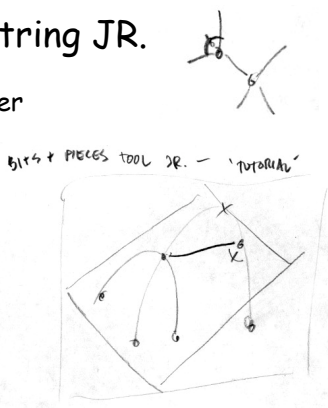 tring JR.
er
BITS + PIECES TOOL JR. – 'TUTORIAL'
X
X